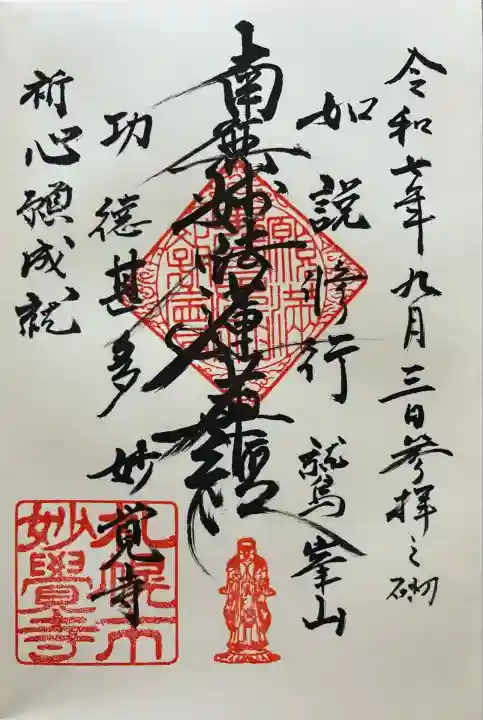 令和七年九月三日参拝之砌
如説修行 鷲峯山
南無妙法蓮華経
功徳甚多 妙覚寺
祈心願成就
札幌市
妙覺寺